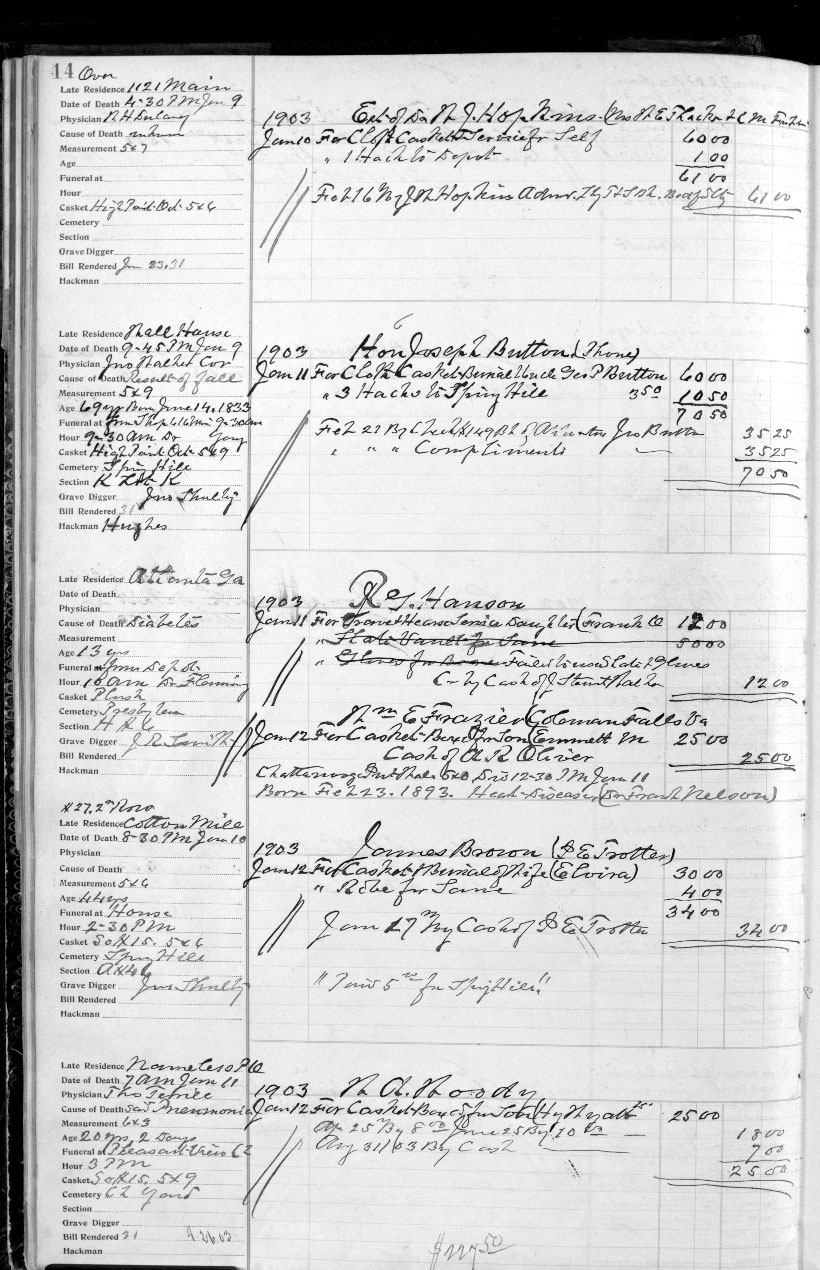 14 Over
Late Residence 1121 Main
Date of Death 4-30 PM Jan 9
Physician R H Dulaney
Cause of Death
Measurement 5x7
Age
Funeral at
Hour
Casket High Point Oct 5x6
Cemetery
Section
Grave Digger
Bill Rendered Jan 23.31
Hackman
1903 Est of Dr J. Hopkins
Jan 10 For Cloth Casket & Service for Self 60 00
" 1 Hack to Depot 1 00
61 00
Feb 16 By J Hopkins Admr. 61 00
Late Residence Hall House
Date of Death 9-45 PM Jan 9
Physician Jno Cor
Cause of Death Result of fall
Measurement 5x9
Age 69 yrs Born June 14, 1833
Funeral at from 616 Main 9-30 am
Hour 9-30 am Dr
Casket High Point Oct 5x9
Cemetery Spring Hill
Section K Lot K
Grave Digger Jno Shultz
Bill Rendered 31
Hackman Hughes
1903 Hon Joseph Button (Phone)
Jan 11 For Cloth Casket & Burial Uncle Geo P Button 60 00
" 3 Hacks to Spring Hill 3 50 10 50
70 50
Feb 27 By Check #149 Jno Button 35 25
" " " Compliments 35 25
70 50
Late Residence Atlanta Ga
Date of Death
Physician
Cause of Death Diabetes
Measurement
Age 13 yrs
Funeral at from Depot
Hour 10 am Dr Fleming
Casket Plush
Cemetery Presbyterian
Section
Grave Digger J R Smith
Bill Rendered
Hackman
1903 R G. Hanson
Jan 11 For Grave & Hearse Service Daughter (Frank Co 12 00
" Slate Vault for Same 50 00
" Gloves for Same Failed to use Slate & Gloves
Cr by Cash of J 12 00
Wm E Frazier (Coleman Falls Va
Jan 12 For Casket & Box for Son Emmett M 25 00
Cash of A R Oliver 25 00
Chattanooga 5x0 Died 12-30 PM Jan 11
Born Feb 23. 1893. Heart Disease (Dr Frank Nelson)
# 27, 2nd Row
Late Residence Cotton Mill
Date of Death 8-30 PM Jan 10
Physician
Cause of Death
Measurement 5x6
Age 44 yrs
Funeral at House
Hour 2-30 PM
Casket So #15. 5x6
Cemetery Spring Hill
Section
Grave Digger Jno Shultz
Bill Rendered
Hackman
1903 James Brown (P E Trotter)
Jan 12 For Casket & Burial of Wife (Elvira) 30 00
" Robe for Same 4 00
34 00
Jan 17th By Cash of P E Trotter 34 00
" Paid 5 00 for Spg Hill "
Late Residence Nameless P O
Date of Death 7 am Jan 11
Physician Tho Terrell
Cause of Death Pneumonia
Measurement 6x3
Age 20 yrs, 2 Days
Funeral at Pleasant View Ch
Hour 3 PM
Casket So #15. 5x9
Cemetery Ch Yard
Section
Grave Digger
Bill Rendered 31 4.26.03
Hackman
1903 W A Woody
Jan 12 For Casket & Box for Son (Hy Wyatt 25 00
Ap 25th By 8 00 June 25 By 10 00 18 00
Aug 31/03 By Cash 7 00
25 00
$227 50